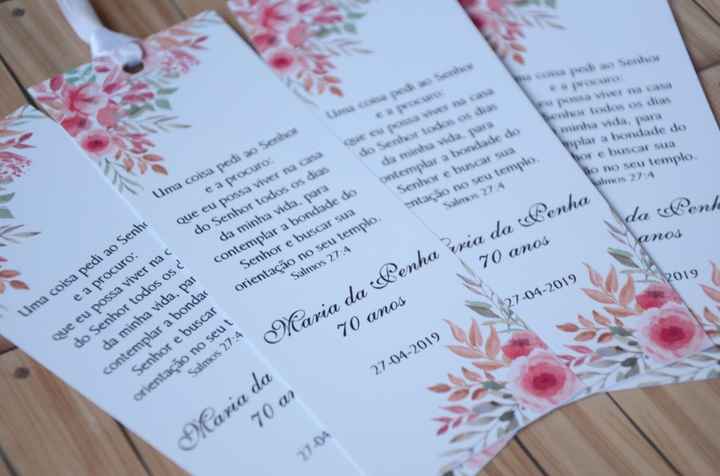 Uma coisa pedi ao Senhor
e a procuro:
que eu possa viver na casa
do Senhor todos os dias
da minha vida, para
contemplar a bondade do
Senhor e buscar sua
orientação no seu templo.
Salmos 27:4
Maria da Penha
70 anos
27-04-2019
Uma coisa pedi ao Senh
e a procuro:
que eu possa viver na c
do Senhor todos os d
da minha vida, para
contemplar a bondad
Senhor e buscar
orientação no seu t
Salmos 27:4
Maria da
70 an
27-04
Uma coisa pedi ao Senhor
e a procuro:
que eu possa viver na casa
do Senhor todos os dias
da minha vida, para
contemplar a bondade do
Senhor e buscar sua
entação no seu templo.
Salmos 27:4
ria da Penha
70 anos
27-04-2019
ma coisa pedi ao Senhor
e a procuro:
eu possa viver na casa
enhor todos os dias
minha vida, para
mplar a bondade do
or e buscar sua
o no seu templo.
lmos 27:4
da Penh
anos
2019